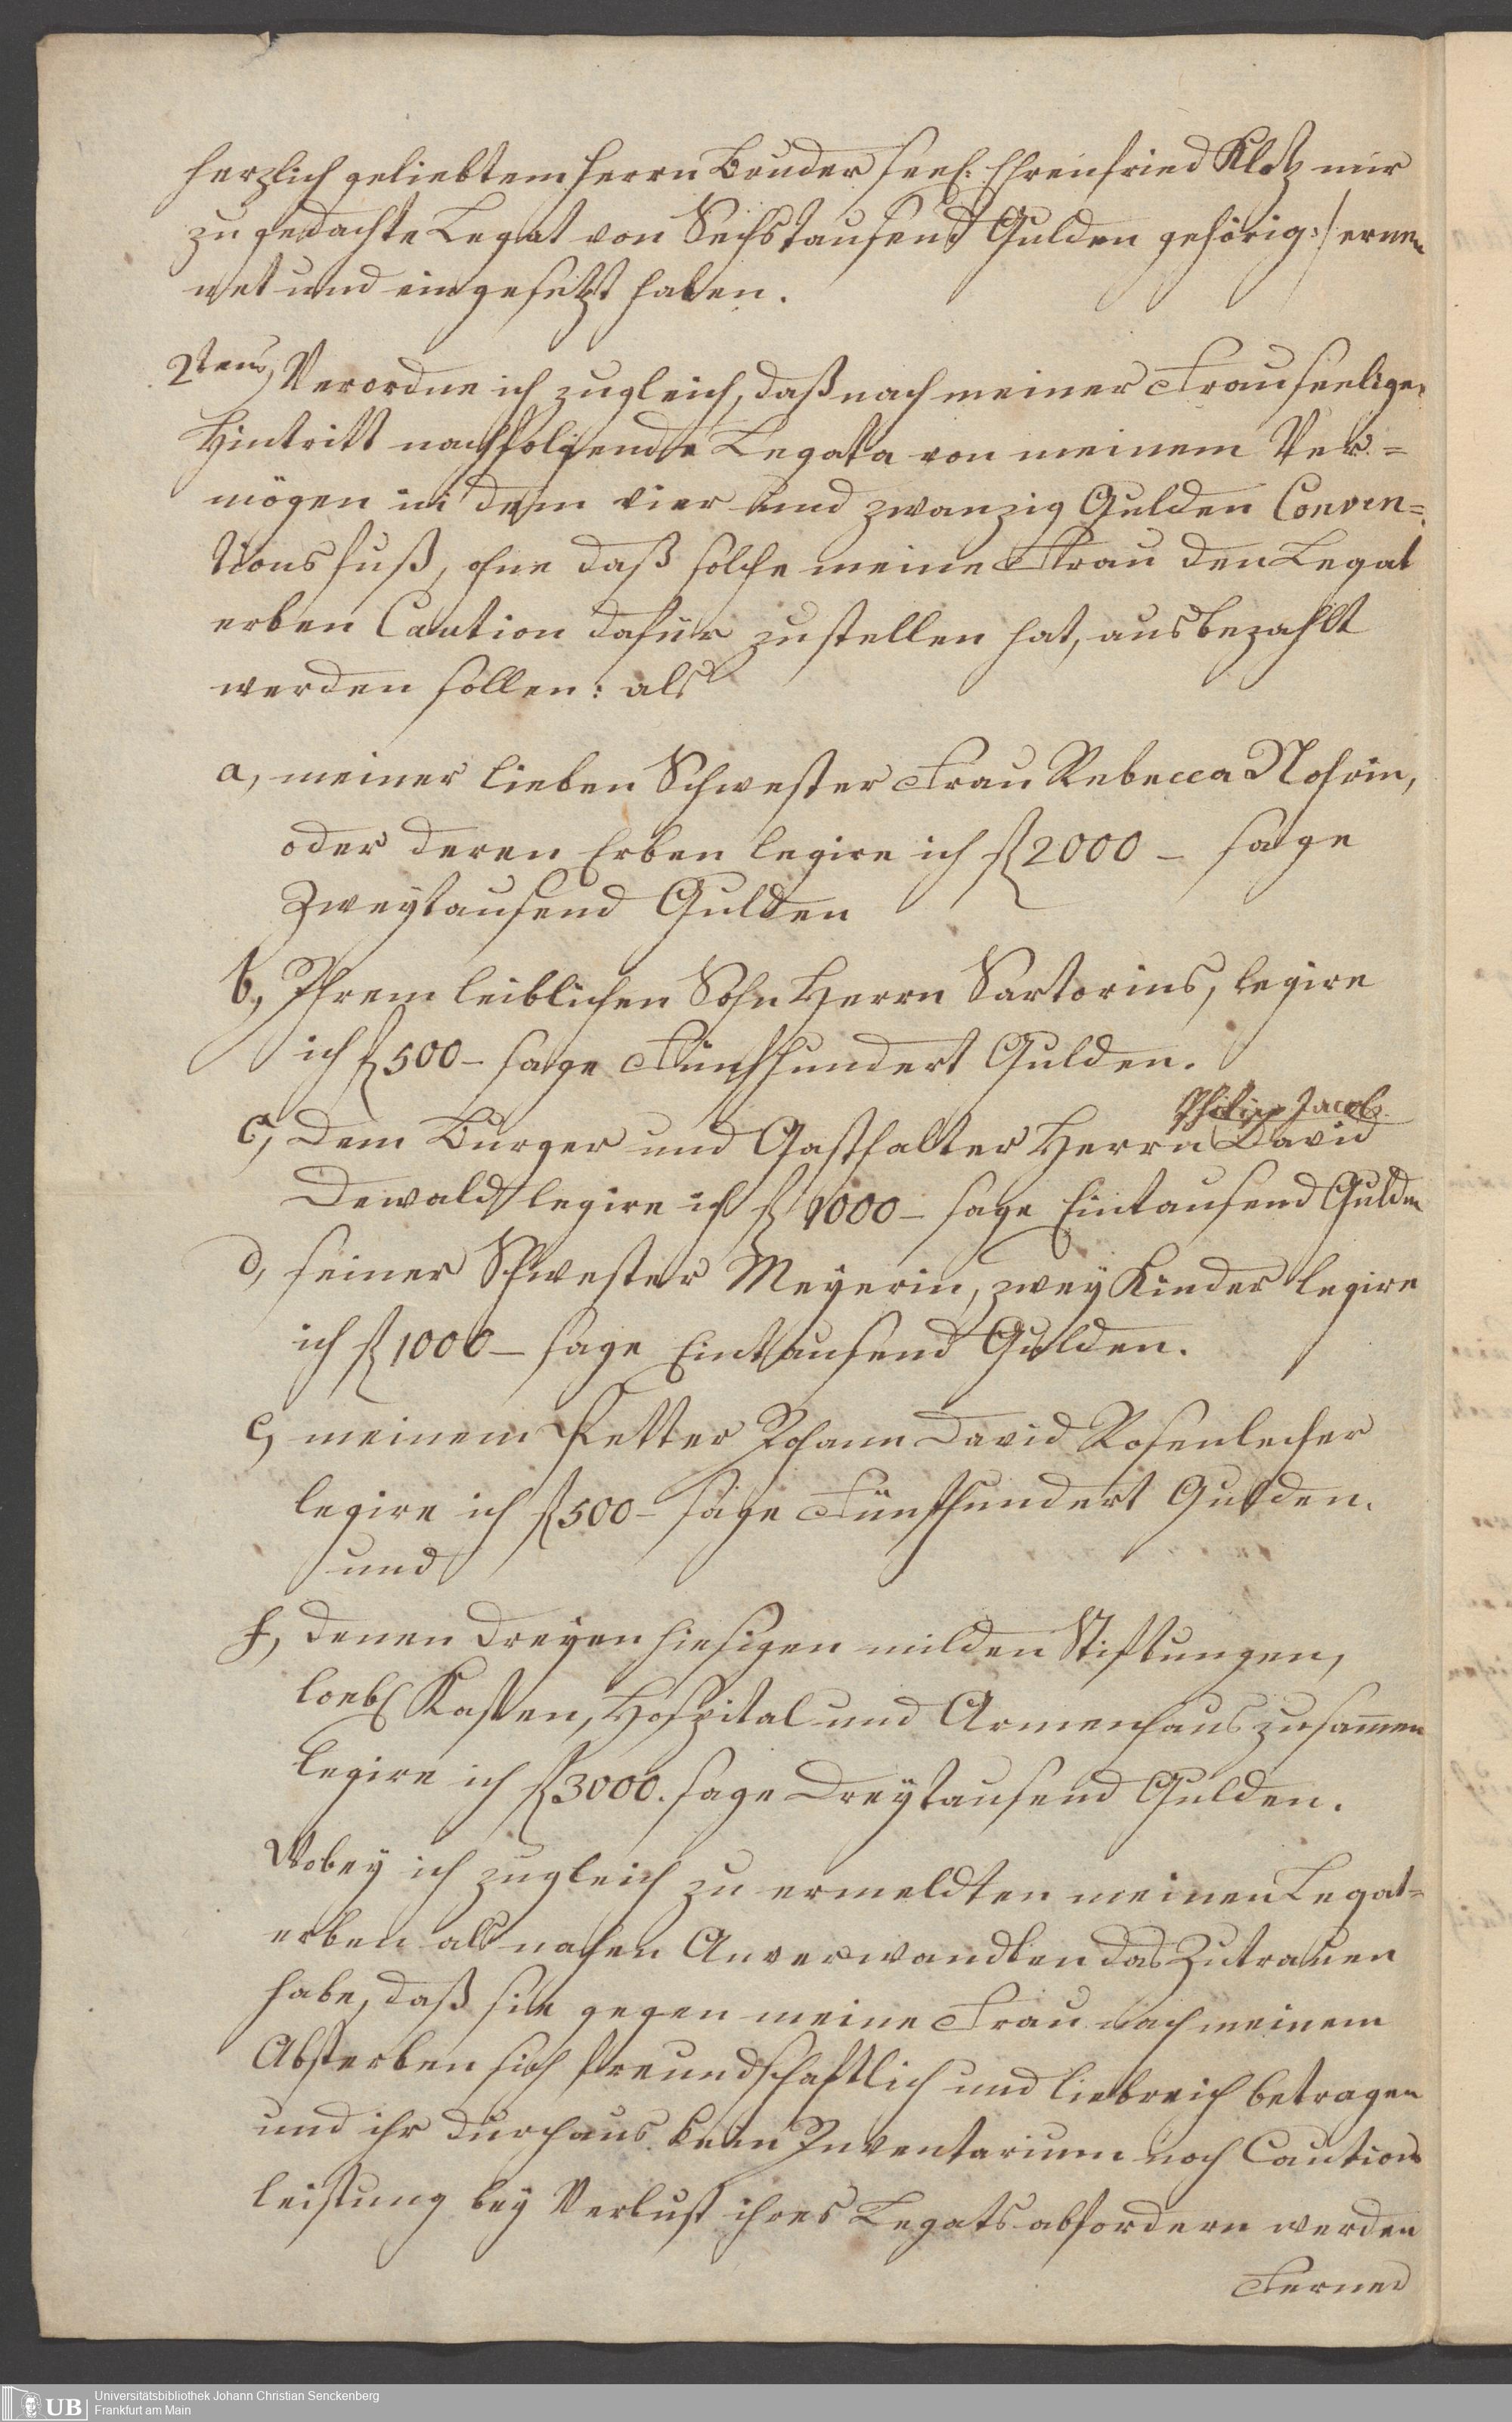 herzlich geliebtem Herrn Bruder seel: Ehrenfried Klotz mir
zu gedachte Legat von Sechstausend Gulden gehörig:/ ernen
net und eingesetzt haben.
2tens, Verordne ich zugleich, daß nach meiner Frau seeligen
Hintritt nachfolgende Legata von meinem Ver=
mögen in dem vier und zwanzig Gulden Conven=
tionsfuß, ohne daß solche meine Frau den Legat
erben Caution dafür zustellen hat, ausbezahlt
werden sollen: als
a, meiner lieben Schwester Frau Rebecca Nohrin,
oder deren Erben legire ich f 2000 – sage
Zweytausend Gulden
b, Ihrem leiblichen Sohn Herrn Sartorius, legire
ich f 500 – sage Fünfhundert Gulden.
Philipp Jacob
c, Dem Burger und Gasthalter Herrn David
Dewald legire ich f 1000 – sage Eintausend Gulden
d, seiner Schwester Meyerin, zwey Kinder legire
ich f 1000 – sage Eintausend Gulden.
e, meinem Petter Johann David Rosenlecher
legire ich f 500 – sage Fünfhundert Gulden.
und
f, denen dreyen hiesigen milden Stiftungen,
loebl Kasten, Hospital und Armenhaus zusammen
legire ich f 3000. sage Dreytausend Gulden.
Wobey ich zugleich zu ermeldten meinen Legat=
erben als nahen Anverwandten das Zutrauen
habe, daß sie gegen meine Frau nach meinem
Absterben sich freundschaftlich und liebreich betragen
und ihr durchaus kein Inventarium noch Cautions
leistung bey Verlust ihres Legats abfordern werden
Ferner
UB
Universitätsbibliothek Johann Christian Senckenberg
Frankfurt am Main